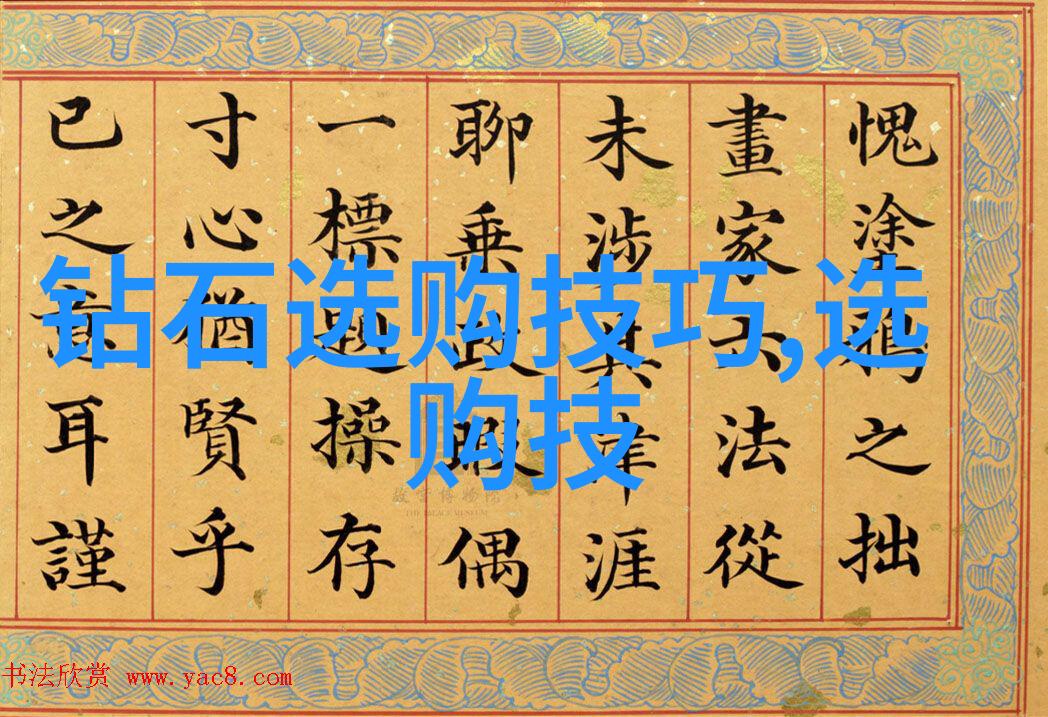 钻石选购技巧,选
购技
愧塗鴉之拙
畫家六法從
未涉其津涯
聊乘政暇偶
一標題操存
寸心猶賢乎
已之意耳謹
故宮博物院
THE PALACE MUSEUM
书法欣赏 www.yac8.com